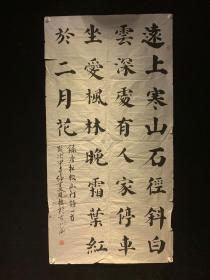 遠上寒山石徑斜白
雲深處有人家停車
坐愛楓林晚霜葉紅
於二月花
錄唐杜牧山行詩一首